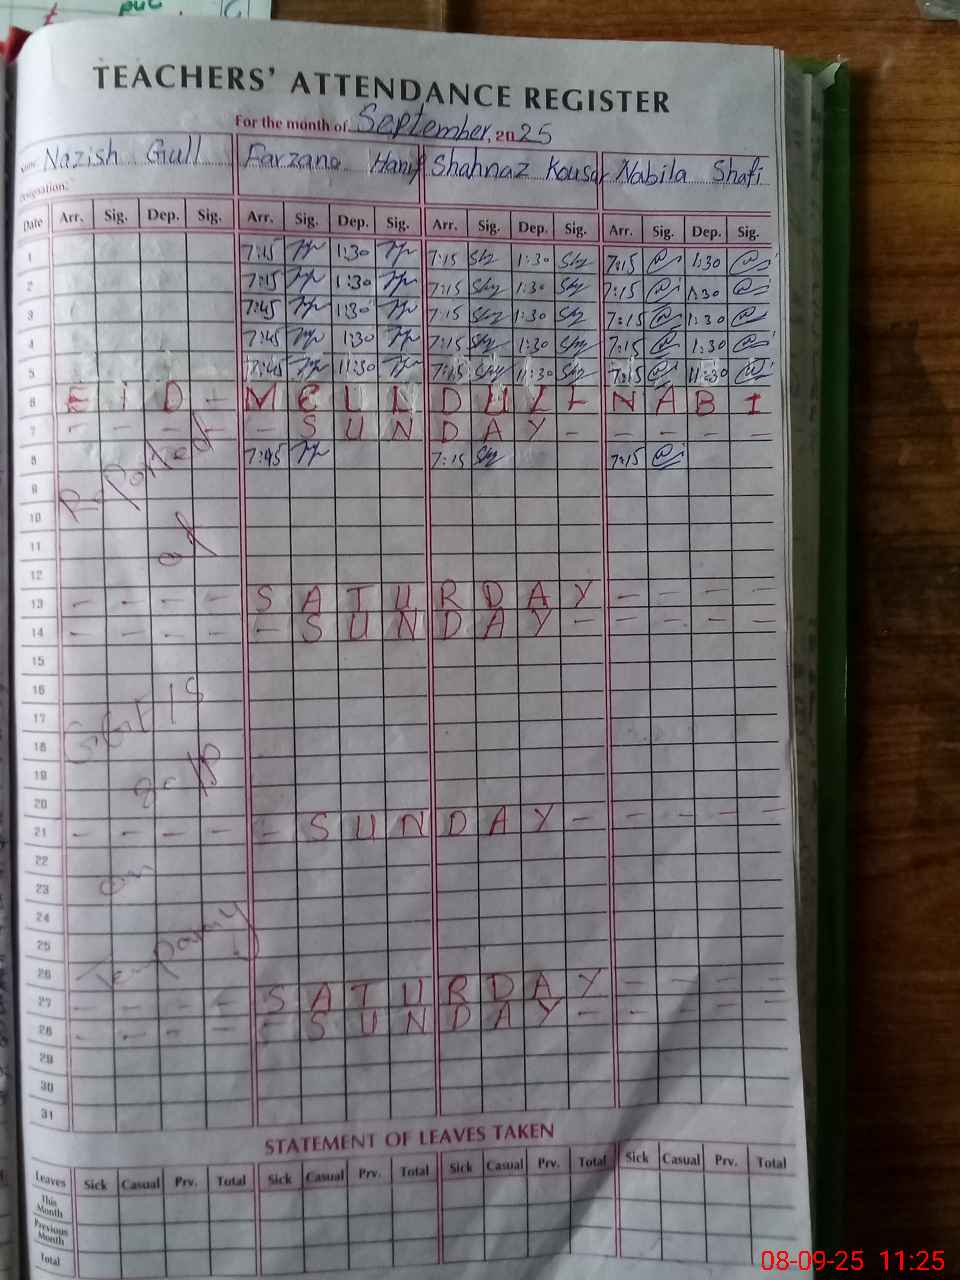 TEACHERS' ATTENDANCE REGISTER
For the month of September, 2025
Name: Nazish Gull Farzana Hanif Shahnaz Kousar Nabila Shafi
Designation:
Date Arr. Sig. Dep. Sig. Arr. Sig. Dep. Sig. Arr. Sig. Dep. Sig. Arr. Sig. Dep. Sig.
1 7:15 1:30 7:15 Shz 1:30 Shz 7:15 1:30
2 7:15 1:30 7:15 Shz 1:30 Shz 7:15 1:30
3 7:45 1:30 7:15 Shz 1:30 Shz 7:15 1:30
4 7:45 1:30 7:15 Shz 1:30 Shz 7:15 1:30
5 7:45 11:30 7:15 Shz 11:30 Shz 7:15 11:30
6 E I D - M E U L D U L - N A B I
7 - - - - - S U N D A Y - - - - -
8 7:45 7:15 Shz 7:15
Reported
9
10
at
11
12
13 - - - - S A T U R D A Y - - - -
14 - - - - - S U N D A Y - - - - -
15
16
17
18
19
20
21 - - - - - S U N D A Y - - - - -
22
23
on
24
25
26
27 - - - - S A T U R D A Y - - - -
28 - - - - - S U N D A Y - - - - -
29
30
31
STATEMENT OF LEAVES TAKEN
Leaves Sick Casual Prv. Total Sick Casual Prv. Total Sick Casual Prv. Total Sick Casual Prv. Total
This Month
Previous Month
Total
08-09-25 11:25